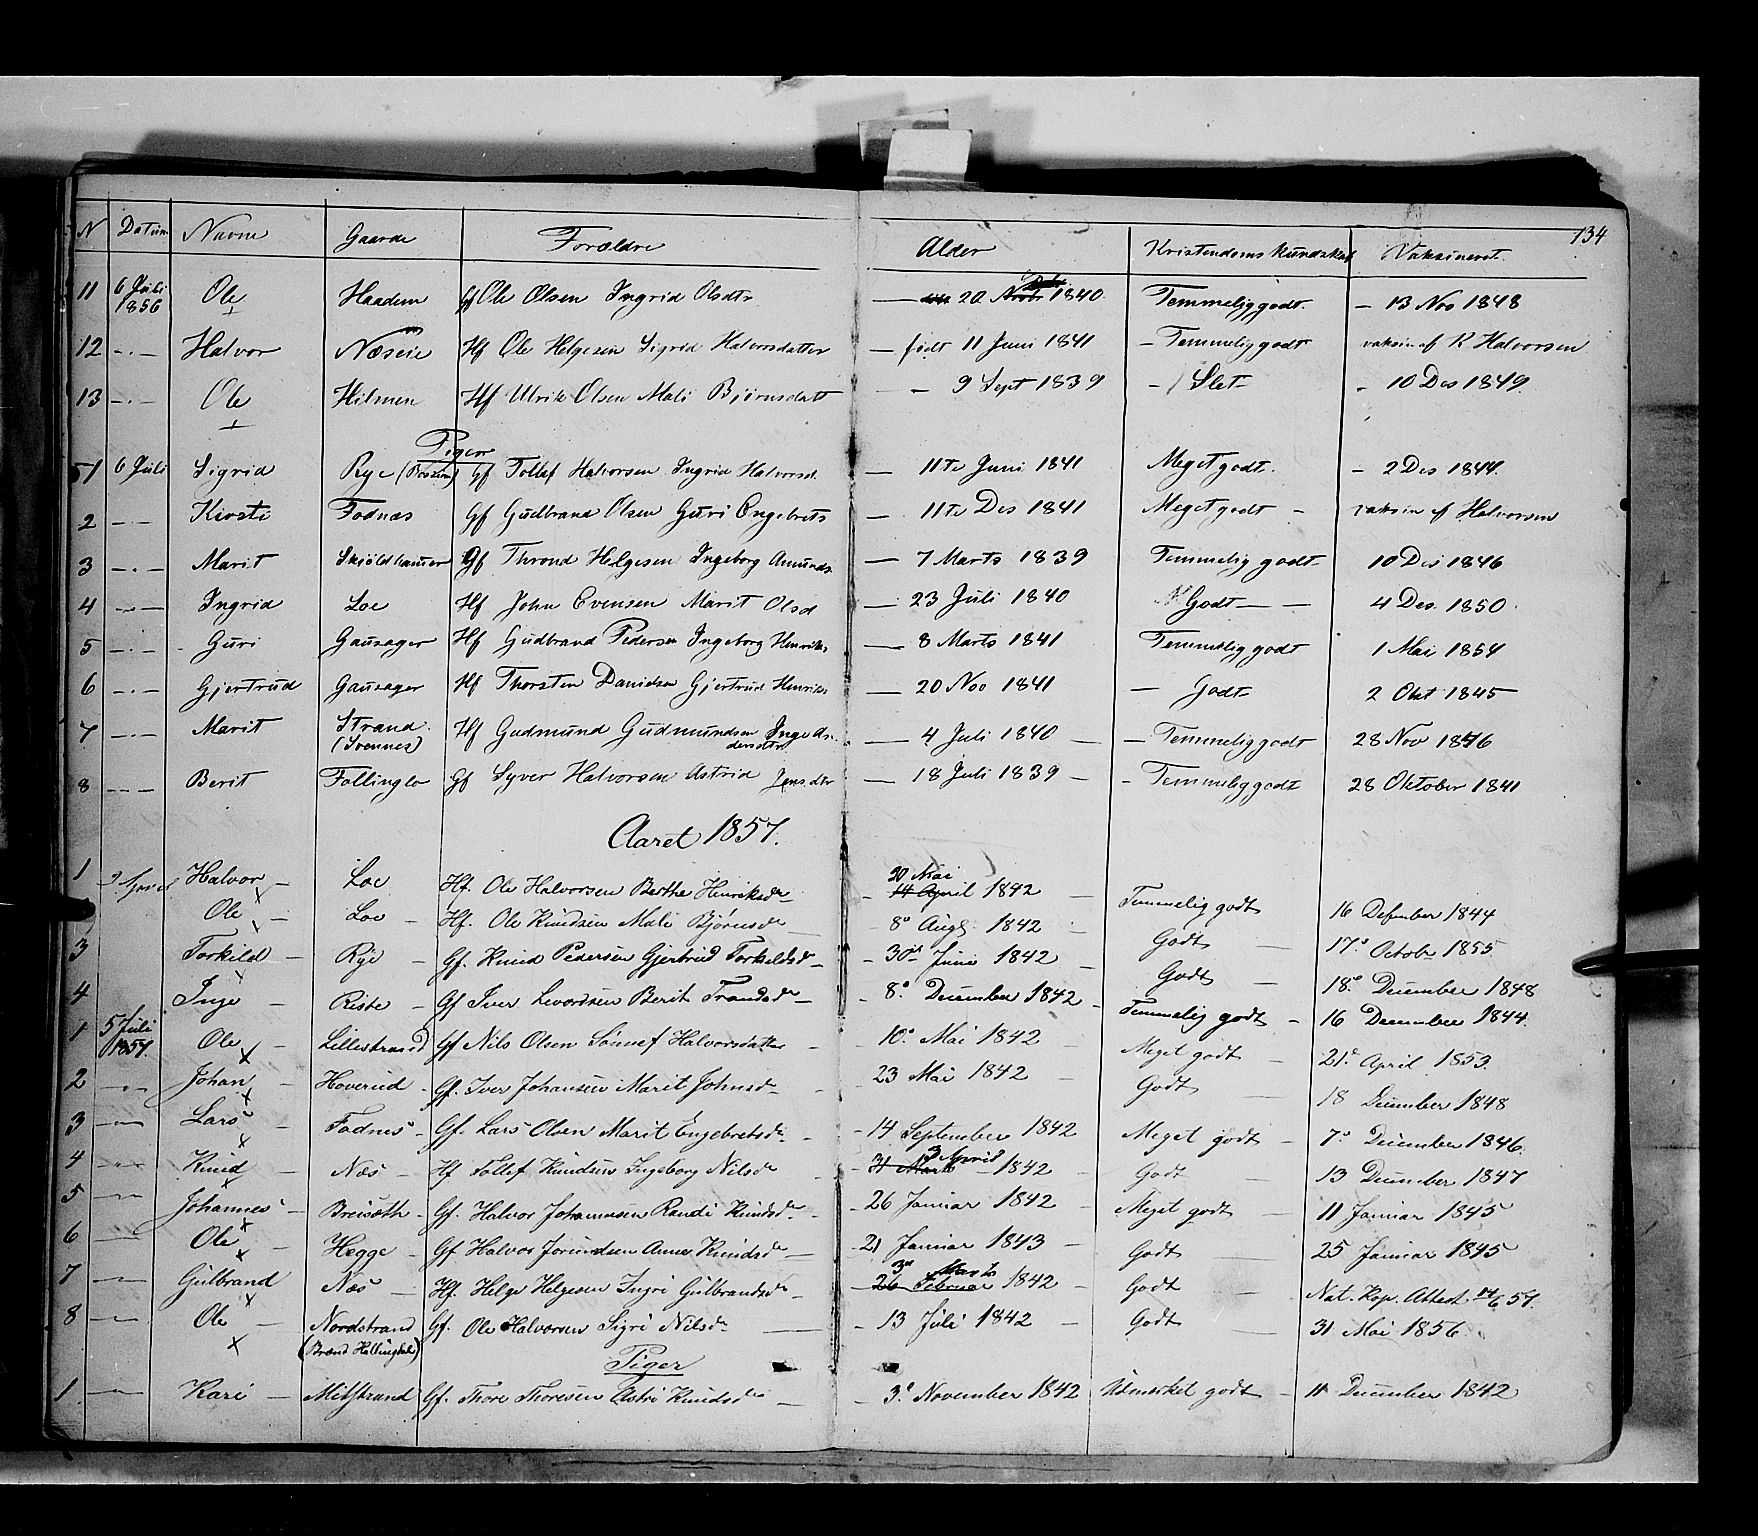 134
N Datum Navne Gaarde Forældre Alder Kristendomskundskab Vaksineret.
11 6 Juli 1856 Ole Haadem Gf Ole Olsen Ingrid Olsdtr — 20 1840. Temmelig godt. – 13 Nov 1848
12 –·– Halvor Næseie Hf Ole Helgesen Sigrid Halvorsdatter — født 11 Juni 1841 – Temmelig godt vaksin af K Halvorsen
13 –·– Ole Hilmen Hf Ulrik Olsen Mali Bjørnsdatt – 9 Sept 1839 – Slet – 10 Des 1849.
Piger
1 6 Juli Sigrid Rye Gf Tollef Halvorsen Ingrid Halvorsd. — 11te Juni 1841 Meget godt. – 2 Des 1844.
2 –·– Kirsti Fodnæs Gf Gudbrand Olsen Guri Engebrets — 11te Des 1841 Meget godt – vaksin af Halvorsen
3 –·– Marit Skjöldhauger Gf Thrond Helgesen Ingeborg Amunds — 7 Marts 1839 Temmelig godt 10 Des 1846
4 –·– Ingrid Loe Hf John Evensen Marit Olsd — 23 Juli 1840 Godt – – 4 Des. 1850.
5 –·– Guri Gausager Hf Gudbrand Pedersen Ingeborg Henriks — 8 Marts 1841 Temmelig godt 1 Mai 1854
6 –·– Gjertrud Gausager Hf Thorsten Danidsen Gjertrud Henriks — 20 Nov 1841 – Godt 2 Okt 1845
7 –·– Marit Strand. (Svennes) Hf Gudmund Gudmundsen — 4 Juli 1840 – – Temmelig godt 28 Nov 1846
8 –·– Berit Follinglo Gf Syver Halvorsen Astrid Jensdtr — 18 Juli 1839 – – Temmelig godt 28 Oktober 1841
Aaret 1857.
1 Halvor – Loe Hf. Ole Halvorsen Berthe Henriksdr – 20 Mai 14 April 1842 – Temmelig godt 16 Desember 1844
Ole – Loe – Hf. Ole Knudsen Mali Bjørnsdr 8de Aug. 1842 – Godt – 17de Octobr 1855.
3 Torkild – Rye – Gf. Knud Pedersen Gjertrud Torkeldsdr – 30te Juni 1842 – Godt – 18de December 1848
4 Inge – Reste – Gf Iver Levordsen Berit Trondsdr – 8de December 1842 – Temmelig godt – 16 December 1844.
1 5 Juli 1857. Ole Lillestrand Gf Nils Olsen Sönnef Halvorsdatter – 10de Mai 1842 Meget godt – 21de April 1853.
2 –·– Johan – Hoverud – Gf. Iver Johansen Marit Johnsdr – 23 Mai 1842 – Godt – 18 December 1848
3 –·– Lars Fodnes – Gf. Lars Olsen Marit Engebretsdr – 14 September 1842 Meget godt – 7de December 1846.
4 –·– Knud – Næs – Hf Tollef Knudsen Ingeborg Nilsdr – 3 April 31 Marts 1842 – Godt – 13 December 1847
5 –·– Johannes – Breisæth – Gf. Halvor Johannesen Randi Knudsdr – 26 Januar 1842 – Meget godt – 11 Januar 1845
6 –·– Ole – Hegge – Gf Halvor Jorundsen Anne Knudsdr – 21 Januar 1843 – Godt 25 Januar 1845
7 –·– Gulbrand Næs – Hf. Helge Helgesen Ingri Gulbrandsdr – 3de Marts 26 Februar 1842 – Godt – Nat. Kop. Attest 14/6 57.
8 –·– Ole – Nordstrand Gf. Ole Halvorsen Sigri Nilsdr – – 13 Juli 1842 – Godt – 31 Mai 1856.
Piger
1 –·– Kari – Midtstrand Gf. Thore Thoresen Astri Knudsdr – – 3de November 1842 Udmærket godt – 11 December 1842